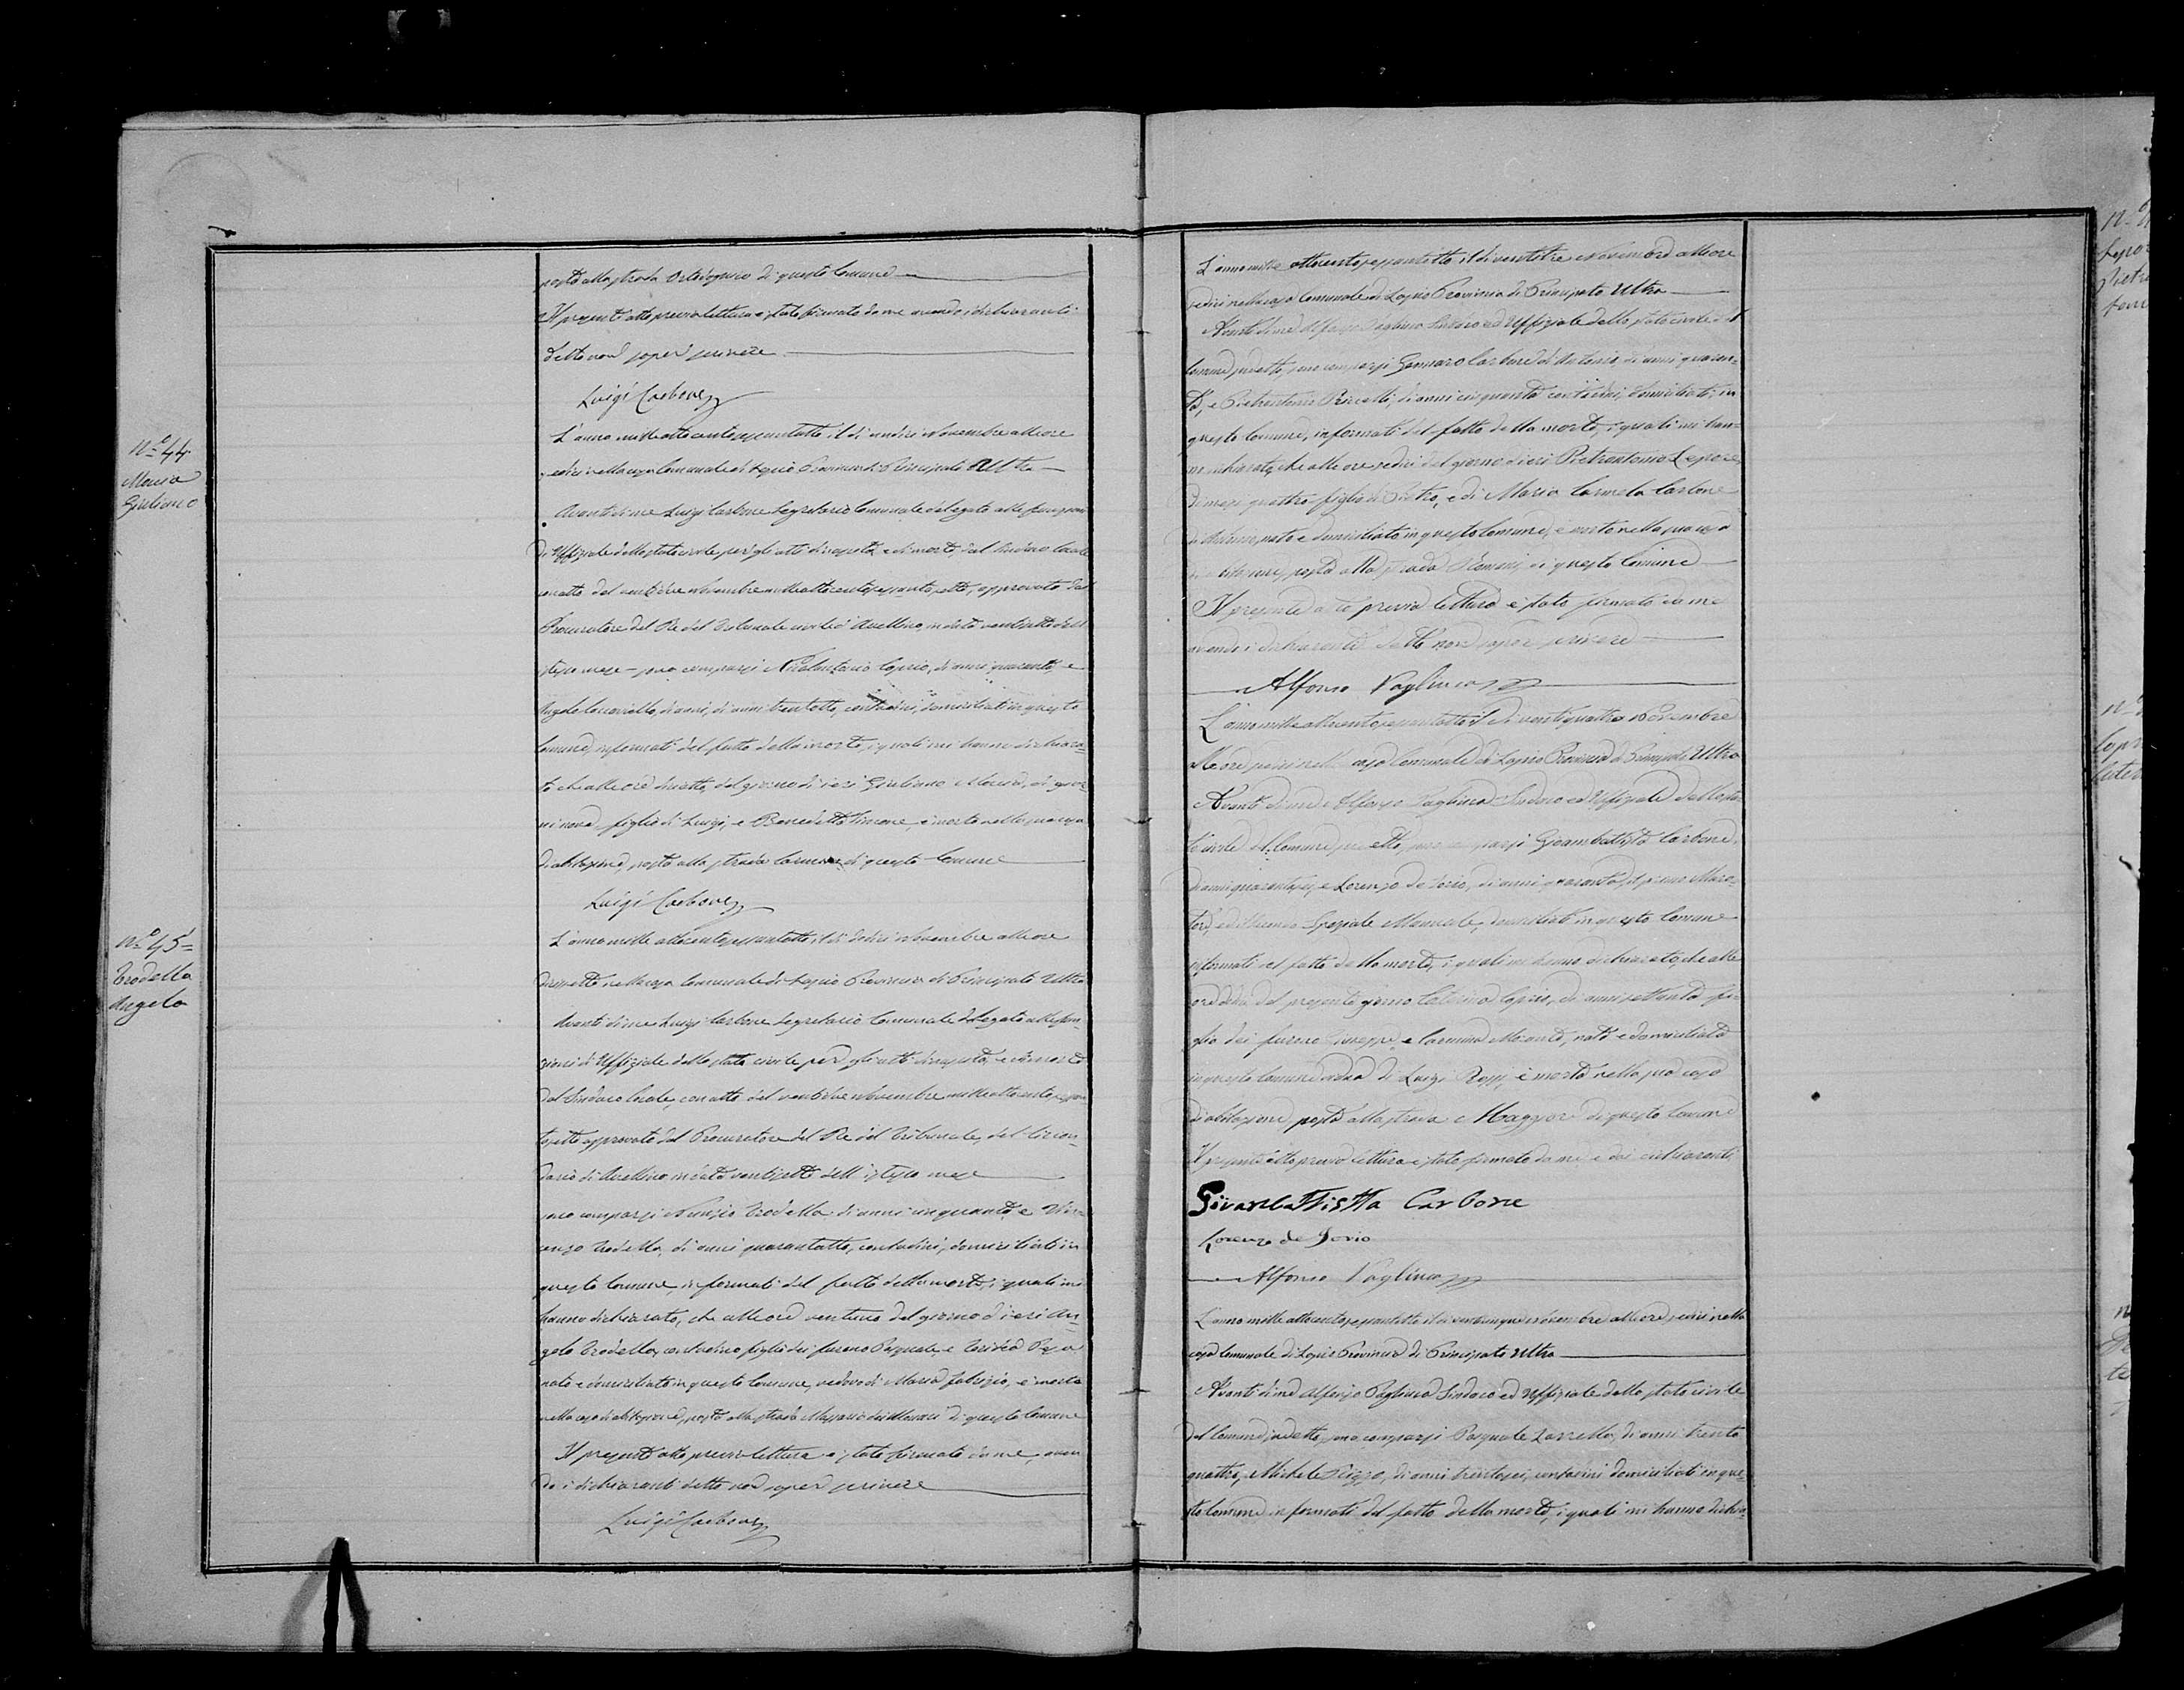 posta alla strada Ortodoguio di questo Comune
Il presente atto previa lettura è stato firmato da me avendo i dichiaranti
detto non saper scrivere
Luigi Carbone
Nº 44
Mauria
Giuliano
L'anno mille ottocento sessantotto il dì undici Novembre alle ore
sedici nella casa Comunale di Lapio Provincia di Principato Ultra
Avanti di me Luigi Carbone Segretario Comunale delegato alle funzioni
di Uffiziale dello stato civile per gli atti di nascita, e di morte, dal Sindaco locale
con atto del ventidue Novembre mille ottocento sessantasette, approvato dal
Procuratore del Re del Tribunale civile di Avellino, in data ventisette dell'
istesso mese - sono comparsi Nicolantonio Caprio, di anni quaranta, e
Angelo di anni, di anni trentotto, contadini, domiciliati in questo
Comune, informati del fatto della morte, i quali mi hanno dichiara=
to che alle ore diciotto, del giorno di ieri Giuliano Mauria, di gior=
ni nove, figlio di Luigi, e Benedetta Simone, è morto nella sua casa
di abitazione, posta alla strada Carmine di questo Comune
Luigi Carbone
Nº 45=
Trodella
Angelo
L'anno mille ottocento sessantotto, il dì dodici Novembre alle ore
diciassette nella casa Comunale di Lapio Provincia di Principato Ultra
Avanti di me Luigi Carbone Segretario Comunale delegato alle fun=
zioni di Uffiziale dello stato civile per gli atti di nascita, e di morte
dal Sindaco locale, con atto del ventidue Novembre mille ottocento sessan
tasette approvato dal Procuratore del Re del Tribunale, del Circon=
dario di Avellino in data ventisette dell'istesso mese
sono comparsi Nunzio Trodella di anni cinquanta, e Vin=
cenzo Trodella, di anni quarantotto, contadini, domiciliati in
questo Comune, informati del fatto della morte, i quali mi
hanno dichiarato, che alle ore ventuno del giorno di ieri An=
gelo Trodella, contadino figlio dei furono Pasquale, e
nato e domiciliato in questo Comune, vedovo di Maria Fabrizio, è morto
nella casa di abitazione, posta alla strada di questo Comune
Il presente atto previa lettura è stato firmato da me, aven
do i dichiaranti detto non saper scrivere
Luigi Carbone
L'anno mille ottocento sessantotto il dì ventitre Novembre alle ore
sedici nella casa Comunale di Lapio Provincia di Principato Ultra
Avanti di me Alfonso Vagliuca Sindaco ed Uffiziale dello stato civile del
Comune suddetto, sono comparsi Gennaro Carbone di Antonio, di anni quaran=
ta, e Pietrantonio di anni cinquanta contadini, domiciliati in
questo Comune, informati del fatto della morte, i quali mi han=
no dichiarato, che alle ore sedici del giorno di ieri Pietrantonio Lepore,
di mesi quattro figlio di Pietro, e di Maria Carmela Carbone
nato e domiciliato in questo Comune, è morto nella sua casa
di abitazione, posta alla strada di questo Comune
Il presente atto previa lettura è stato firmato da me
avendo i dichiaranti detto non saper scrivere
Alfonso Vagliuca
L'anno mille ottocento sessantotto il dì ventiquattro Novembre
alle ore sedici nella casa Comunale di Lapio Provincia di Principato Ultra
Avanti di me Alfonso Vagliuca Sindaco ed Uffiziale dello sta=
to civile del Comune suddetto, sono comparsi Giambattista Carbone,
di anni quarantasei, e Lorenzo de Iorio, di anni quaranta, il primo Mura=
tore, ed il secondo Speziale Manuale, domiciliati in questo Comune
informati del fatto della morte, i quali mi hanno dichiarato, che alle
ore dodici del presente giorno Caterina Caprio, di anni settanta, fi=
glia dei furono Giuseppe, e Carmina nata e domiciliata
in questo Comune vedova di Luigi Rossi, è morta nella sua casa
di abitazione posta alla strada Maggiore di questo Comune
Il presente atto previa lettura è stato firmato da me e dai dichiaranti
Giovanbattistta Carbone
Lorenzo de Iorio
Alfonso Vagliuca
L'anno mille ottocento sessantotto il dì venticinque Novembre alle ore sedici nella
casa Comunale di Lapio Provincia di Principato Ultra
Avanti di me Alfonso Vagliuca Sindaco ed Uffiziale dello stato civile
del Comune suddetto, sono comparsi Pasquale Zarrella, di anni trenta
quattro, e Michele di anni trentasei, contadini domiciliati in que=
sto Comune informati del fatto della morte, i quali mi hanno dichia=